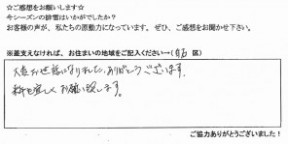 ☆ご感想をお願いします☆
今シーズンの除雪はいかがでしたか?
お客様の声が、私たちの原動力になっています。ぜひ、ご感想をお聞かせ下さい。
※差支えなければ、お住まいの地域をご記入ください→( 区)
大変お世話になりました。ありがとうございます。
来年も宜しくお願い致します。
ご協力ありがとうございました!